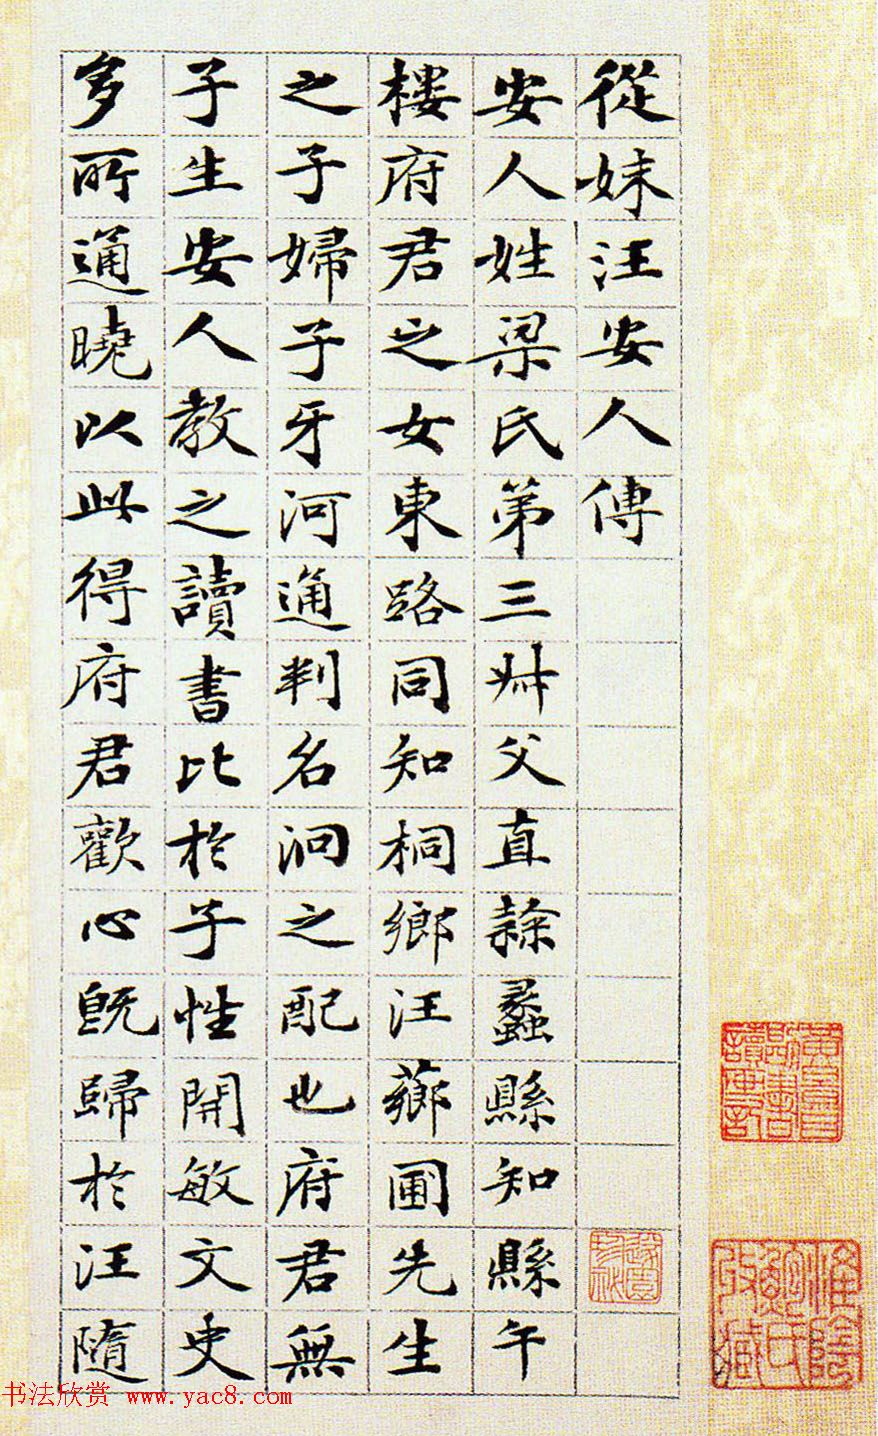 從妹汪安人傳
安人姓梁氏第三叔父直隸蠡縣知縣午
樓府君之女東路同知桐鄉汪薌圃先生
之子婦子牙河通判名泂之配也府君無
子生安人教之讀書比於子性開敏文史
多所通曉以此得府君歡心既歸於汪隨
书法欣赏 www.yac8.com